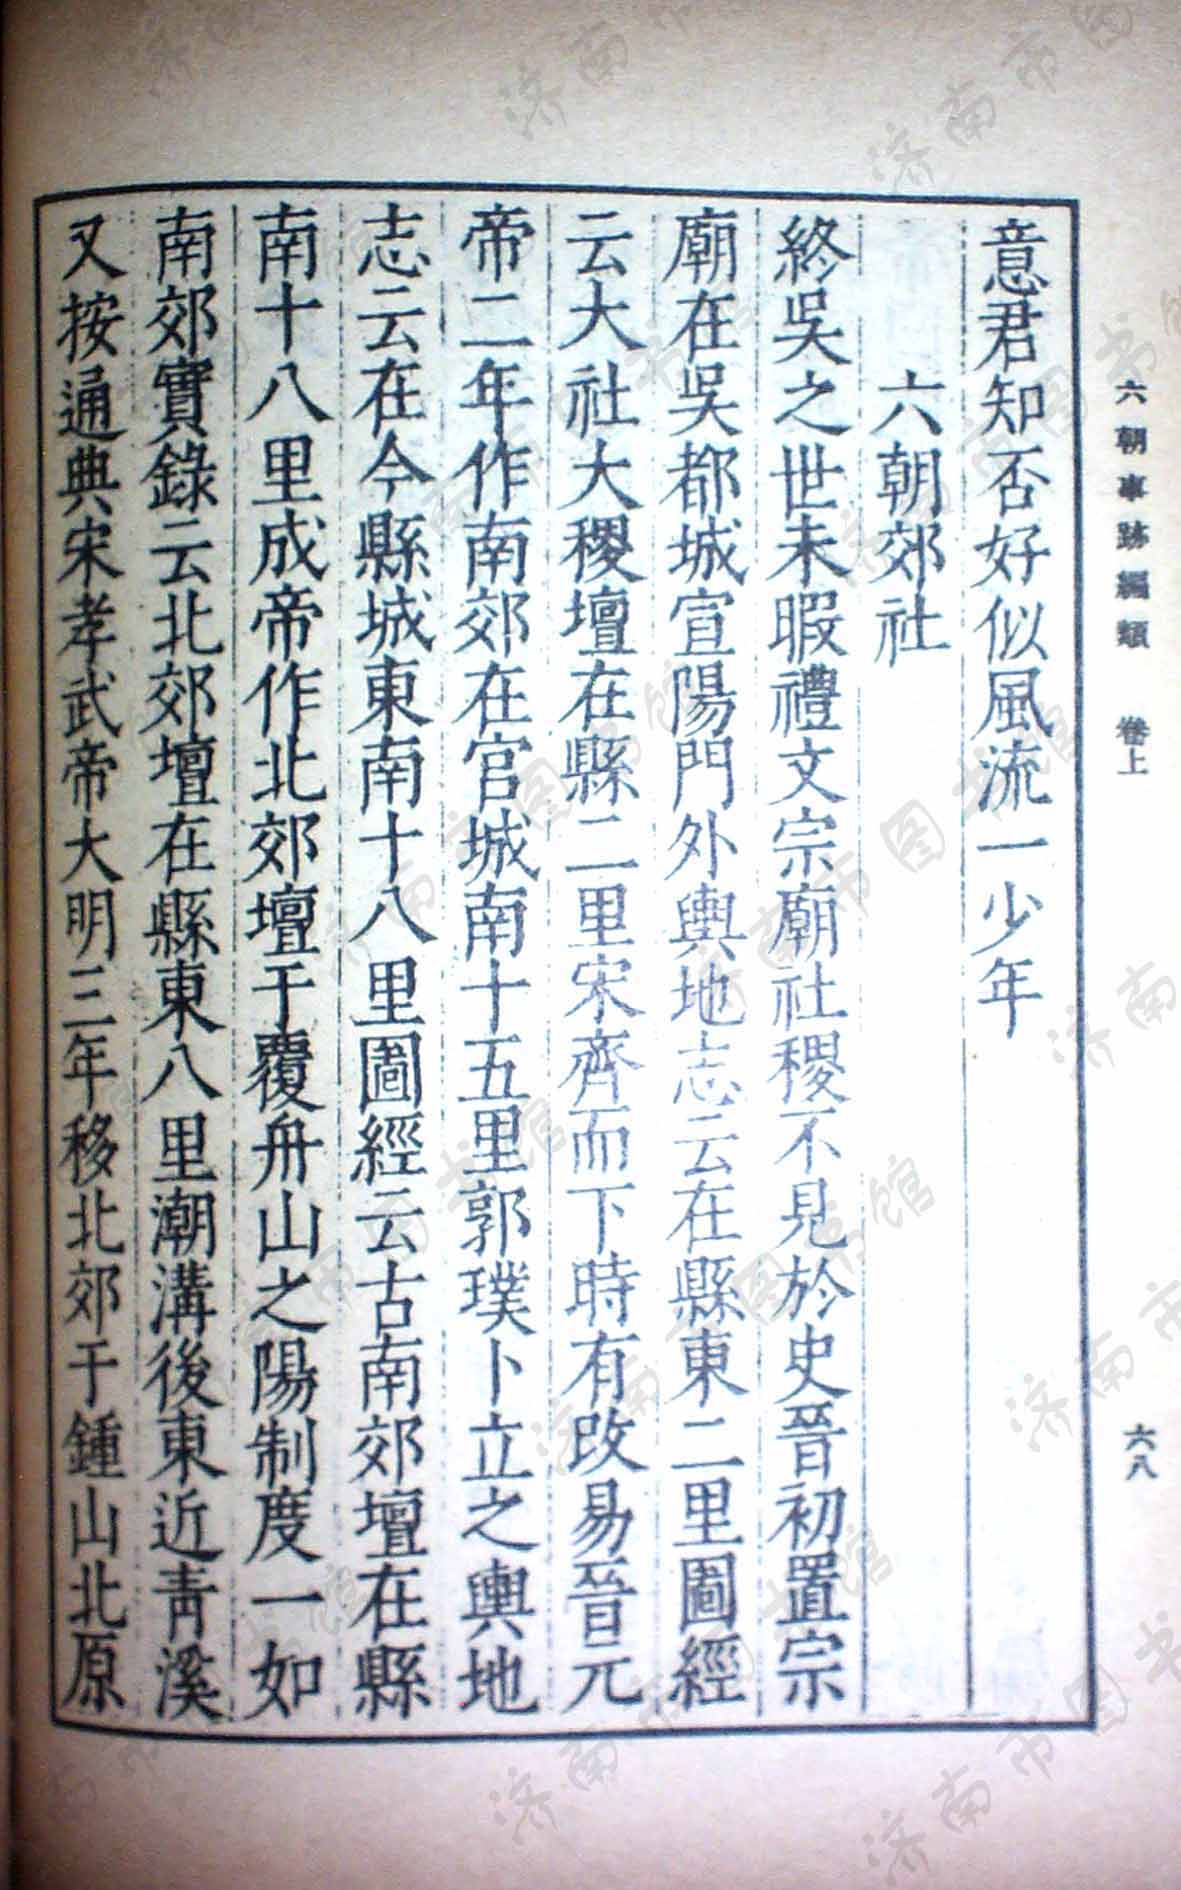 六朝事跡編類　卷上
六八
意君知否好似風流一少年
六朝郊社
終吳之世未暇禮文宗廟社稷不見於史晉初置宗
廟在吳都城宣陽門外輿地志云在縣東二里圖經
云大社大稷壇在縣二里宋齊而下時有改易晉元
帝二年作南郊在宮城南十五里郭璞卜立之輿地
志云在今縣城東南十八里圖經云古南郊壇在縣
南十八里成帝作北郊壇于覆舟山之陽制度一如
南郊實錄云北郊壇在縣東八里潮溝後東近青溪
又按通典宋孝武帝大明三年移北郊于鍾山北原
济南市图书馆